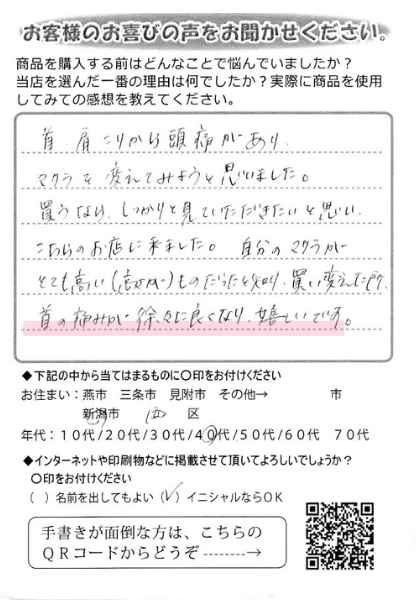 お客様のお喜びの声をお聞かせください。
商品を購入する前はどんなことで悩んでいましたか?
当店を選んだ一番の理由は何でしたか?実際に商品を使用
してみての感想を教えてください。
首、肩こりから頭痛があり、
マクラを変えてみようと思いました。
買うなら、しっかりと見ていただきたいと思い、
こちらのお店に来ました。自分のマクラが
とても高い(高さが)ものだったと知り、買い変えた所、
首の痛みが徐々に良くなり、嬉しいです。
◆下記の中から当てはまるものに〇印をお付けください
お住まい：燕市 三条市 見附市 その他→ 市
新潟市 西 区
年代：10代/20代/30代/40代/50代/60代 70代
◆インターネットや印刷物などに掲載させて頂いてよろしいでしょうか？
〇印をお付けください
( ) 名前を出してもよい (✓) イニシャルならOK
手書きが面倒な方は、こちらの
QRコードからどうぞ --------→